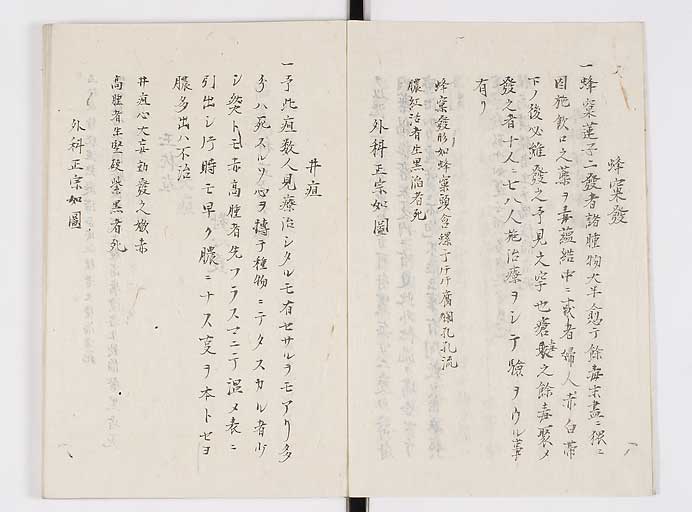 蜂窠發
一蜂窠蓮子二發者諸腫物大半愈テ餘毒未盡ニ猥ニ
固施斂口之薬ヲ毒蘊結中ニ或者婦人赤白帯
下ノ後必雖發之予見文字也瘡毒之餘毒聚メ
發之者十人ニ七八人施治療ヲシテ驗ヲウル事
有リ
蜂窠發形如蜂窠頭含螺子斤斤腐爛孔孔流
膿紅活者生黒陷者死
外科正宗如圖
井疽
一予此疽数人見療治シタルモ有セサルヲモアリ多
分ハ死スルソ心ヲ轉テ種物ニテタスカル者少
シ然トモ赤高腫者先フラスマニテ温メ表ニ
引出シ片時モ早ク膿ニナス叓ヲ本トセヨ
膿多出ハ不治
井疽心大妄動發之嫩赤
高腫者生堅硬紫黒者死
外科正宗如圖